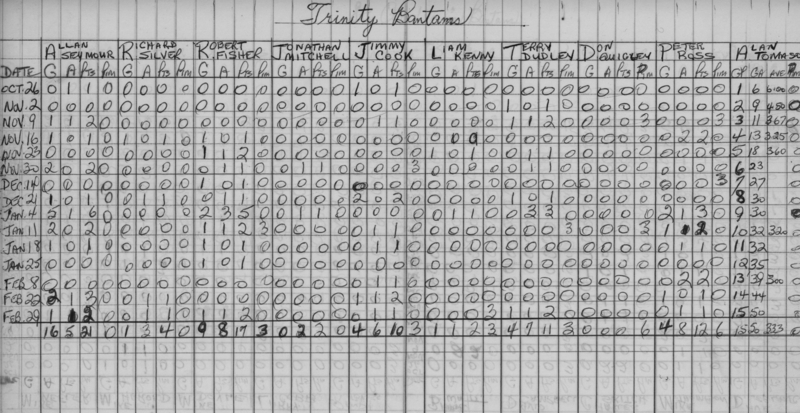 Trinity Bantams
ALLAN SEYMOUR RICHARD SILVER ROBERT FISHER JONATHAN MITCHELL JIMMY COOK LIAM KENNY TERRY DUDLEY DON QUIGLEY PETER ROSS ALAN
DATE G A PTS PIM G A PTS PIM G A PTS PIM G A PTS PIM G A PTS PIM G A PTS PIM G A PTS PIM G A PTS PIM G A PTS PIM GP GA AVE
OCT.26 0 1 1 0 0 0 0 0 0 0 0 0 0 0 0 0 1 0 1 0 0 0 0 0 0 0 0 0 0 0 0 0 0 0 0 0 1 6 6.00 0
NOV.2 0 0 0 0 0 0 0 0 0 0 0 0 0 0 0 0 0 0 0 0 0 0 0 0 1 0 1 0 0 0 0 0 0 0 0 0 2 9 4.50 0
NOV.9 1 1 2 0 0 0 0 0 0 0 0 0 0 0 0 0 0 1 1 0 0 0 0 0 1 1 2 0 0 0 0 3 0 0 0 3 3 11 3.67 0
NOV.16 1 0 1 0 1 0 1 0 1 0 1 0 0 0 0 0 0 0 0 0 0 0 0 0 0 0 0 0 0 0 0 0 0 2 2 0 4 13 3.25 0
NOV.23 0 0 0 0 0 0 0 0 1 1 2 0 0 0 0 0 0 0 0 0 1 0 1 0 0 1 1 0 0 0 0 0 0 0 0 0 5 18 3.60 0
NOV.30 2 0 2 0 0 0 0 0 0 1 1 0 0 1 1 0 0 0 0 3 0 0 0 0 0 1 1 0 0 0 0 0 0 0 0 0 6 23 0
DEC.14 0 0 0 0 0 0 0 0 1 0 1 0 0 0 0 0 0 0 0 0 0 0 0 0 0 0 0 0 0 0 0 0 0 0 0 3 7 27 0
DEC.21 1 0 1 0 0 1 1 0 0 1 1 0 0 0 0 0 2 0 2 0 0 0 0 0 1 0 1 0 0 0 0 0 0 0 0 0 8 30 0
JAN.4 5 1 6 0 0 0 0 0 2 3 5 0 0 1 1 0 0 0 0 0 0 1 1 0 0 3 3 0 0 0 0 0 2 1 3 0 9 30 0
JAN.11 2 0 2 0 0 0 0 0 1 1 2 3 0 0 0 0 0 1 1 0 0 0 0 0 0 0 0 3 0 0 0 3 1 1 2 0 10 32 3.20 0
JAN.18 1 0 1 0 0 0 0 0 1 0 1 0 0 0 0 0 0 1 1 0 0 0 0 0 0 0 0 0 0 0 0 0 0 0 0 0 11 32 0
JAN.25 0 0 0 0 0 0 0 0 1 0 1 0 0 0 0 0 0 0 0 0 0 0 0 0 0 0 0 0 0 0 0 0 0 0 0 0 12 35 0
FEB.8 0 0 0 0 0 0 0 0 0 0 0 0 0 0 0 0 0 1 1 0 0 0 0 0 0 0 0 0 0 0 0 0 0 2 2 0 13 39 3.00 0
FEB.22 2 1 3 0 0 1 1 0 0 0 0 0 0 0 0 0 1 1 2 0 0 0 0 0 0 0 0 0 0 0 0 0 1 0 1 0 14 44 0
FEB.29 1 1 2 0 0 1 1 0 1 1 2 0 0 0 0 0 0 0 0 0 0 0 0 3 1 1 2 0 0 0 0 0 0 0 0 0 15 50 0
16 5 21 0 1 3 4 0 9 8 17 3 0 2 2 0 4 6 10 3 1 1 2 3 4 7 11 3 0 0 0 6 4 8 12 6 15 50 3.33 0